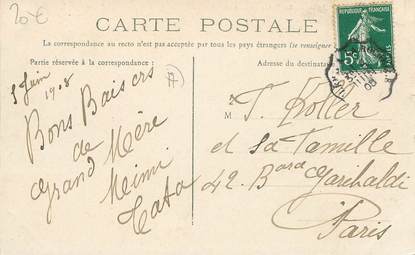 20€
CARTE POSTALE
La correspondance au recto n'est pas acceptée par tous les pays étrangers (se renseigner
Partie réservée à la correspondance :
Adresse du destinataire
RÉPUBLIQUE FRANÇAISE
5c
5 Juin
1908
Bons Baisers
de
Grand Mère
Mimi
Tata
M
T. Koller
et sa Famille
42. Bard Garibaldi
Paris